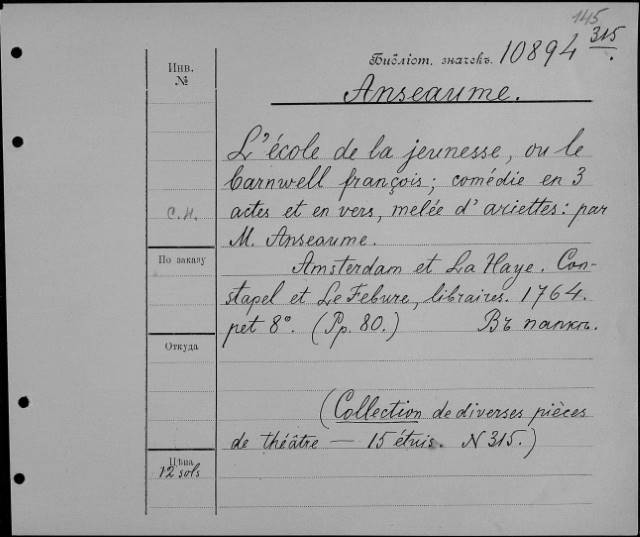 145
Библіот. значекъ. 10894 315.
Инв.
№
Anseaume.
L'école de la jeunesse, ou le
Barnwell françois; comédie en 3
С.Н. actes et en vers, melée d'ariettes: par
M. Anseaume.
По заказу
Amsterdam et La Haye. Con-
stapel et Le Febure, libraires. 1764.
pet 8°. (Pp. 80.) Въ папкѣ.
Откуда
(Collection de diverses pièces
de théâtre — 15 étuis. N 315.)
Цѣна
12 sols